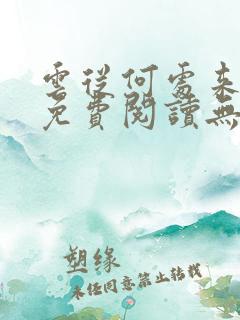 雲從何處來
免費閱讀無
塑緣
未經同意禁止轉載